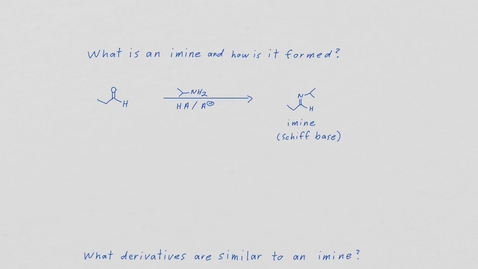 What is an imine and how is it formed?
O
H
NH₂
HA/A⊖
N
H
imine
(schiff base)
What derivatives are similar to an imine?